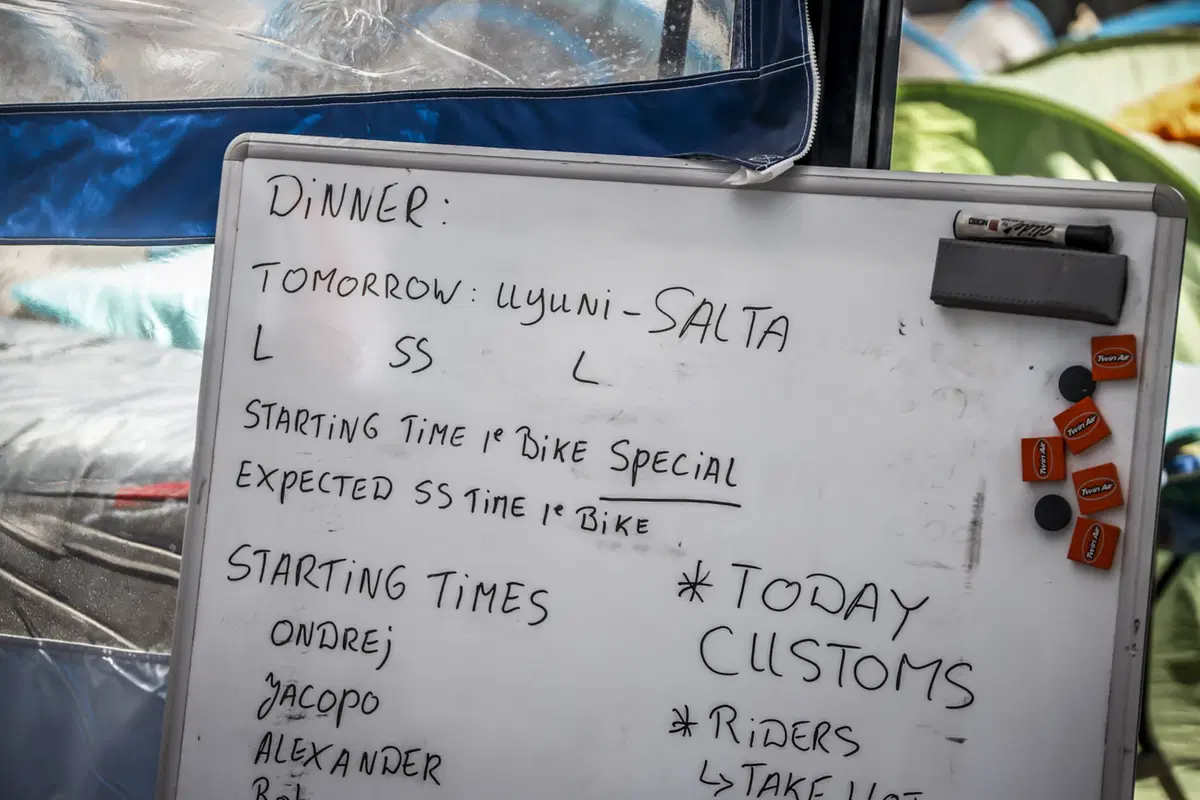 DiNNER:
TOMORROW: UyUNi - SALTA
L SS L
STARTiNG TiME 1e BiKE SPECiAL
EXPECTED SS TiME 1e BiKE
STARTiNG TiMES
ONDREj
JACOPO
ALEXANDER
* TODAY
CUSTOMS
* RiDERS
↳ TAKE
NOBO Glide
Twin Air
Twin Air
Twin Air
Twin Air
Twin Air